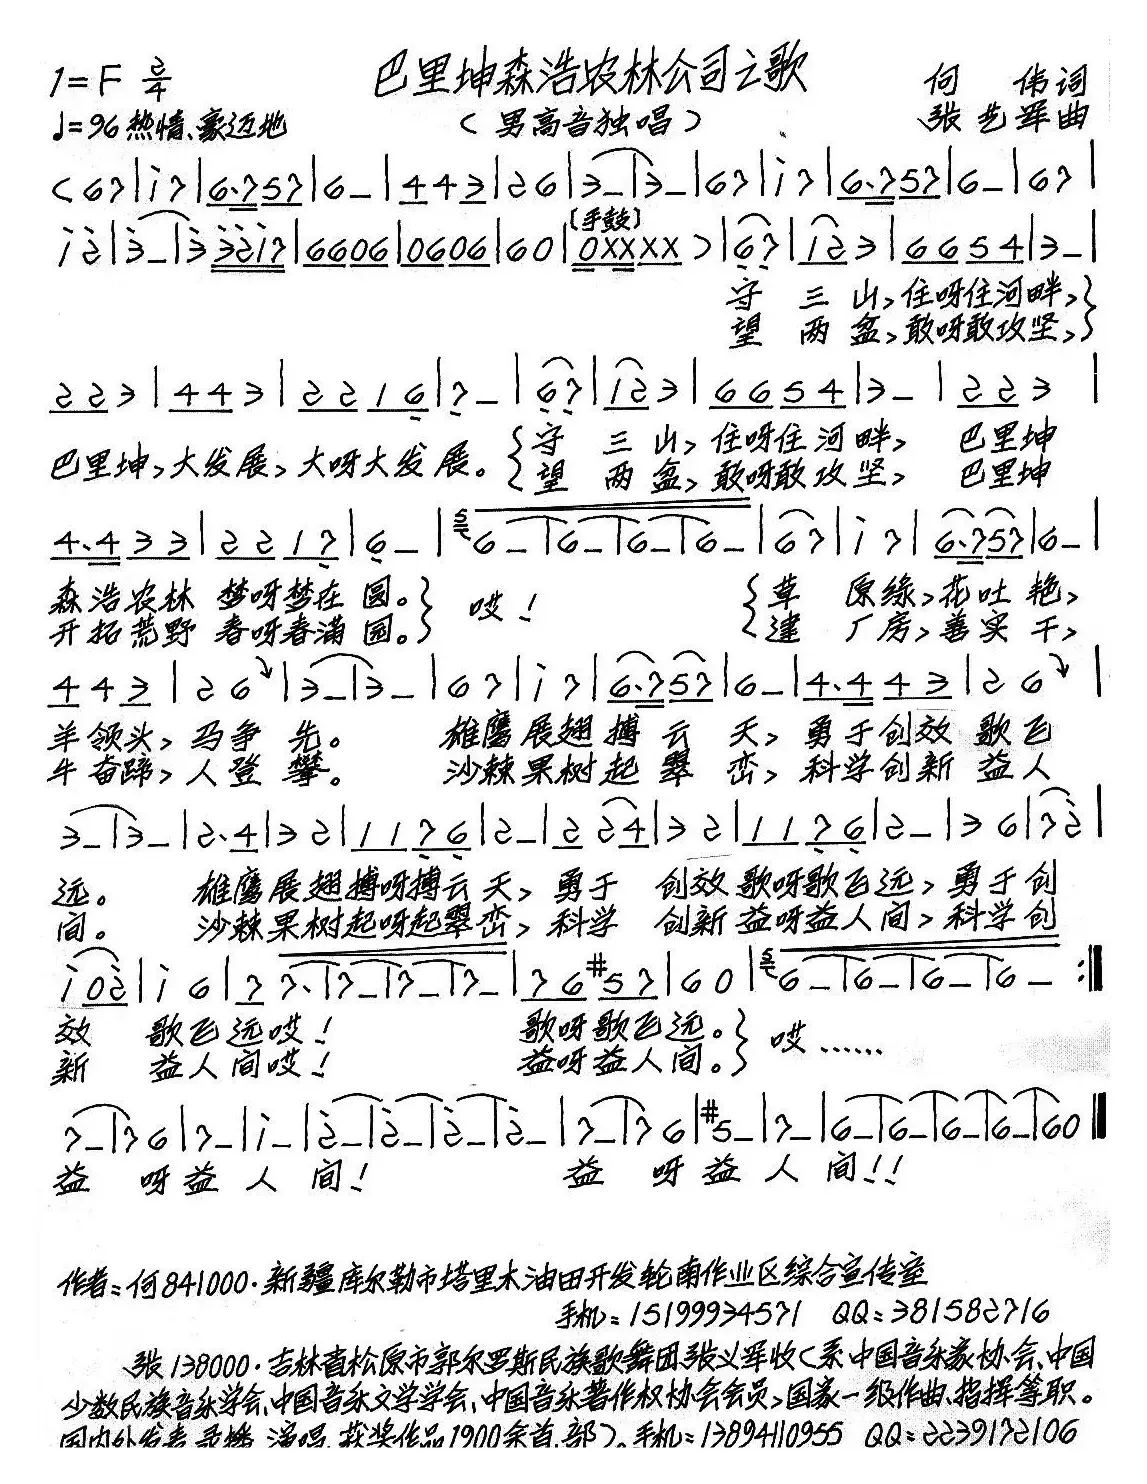 巴里坤森浩农林公司之歌
1=F 2/4 何 伟词
♩=96 热情、豪迈地 (男高音独唱) 张艺军曲
(6 7|i 7|6.7 5 7|6 _|4 4 3|2 6|3 _|3 _|6 7|i 7|6.7 5 7|6 _|6 7|
[手鼓]
i 2|3 _|3 3 2 i 7|6 6 0 6|0 6 0 6|6 0|0XXXX)|6 7|1 2 3|6 6 5 4|3 _|
守 三 山,住呀住河畔,}
望 两 盆,敢呀敢攻坚,}
2 2 3|4 4 3|2 2 1 6|7 _|6 7|1 2 3|6 6 5 4|3 _|2 2 3|
巴里坤,大发展,大呀大发展。{守 三 山,住呀住河畔, 巴里坤
{望 两 盆,敢呀敢攻坚, 巴里坤
4.4 3 3|2 2 1 7|6 _|6 _|6 _|6 _|6 _|6 7|i 7|6.7 5 7|6 _|
森浩农林 梦呀梦在 圆。} 哎! {草 原绿,花吐 艳,
开拓荒野 春呀春满 园。} {建 厂房,善实 干,
4 4 3|2 6|3 _|3 _|6 7|i 7|6.7 5 7|6 _|4.4 4 3|2 6|
羊领头,马争 先。 雄鹰展翅搏 云 天,勇于创效 歌飞
牛奋蹄,人登 攀。 沙棘果树起 翠 峦,科学创新 益人
3 _|3 _|2.4|3 2|1 1 7 6|2 _|2 2 4|3 2|1 1 7 6|2 _|3 6|7 2|
远。 雄鹰展翅搏呀搏云天,勇于 创效歌呀歌飞远,勇于创
间。 沙棘果树起呀起翠峦,科学 创新益呀益人间,科学创
i 0 2|i 6|7 7.|7 _|7 _|7 _|7 6 #5 7|6 0|6 _|6 _|6 _|6 _:|
效 歌飞远哎! 歌呀歌飞远。} 哎……
新 益人间哎! 益呀益人间。}
7 _|7 6|7 _|i _|2 _|2 _|2 _|2 _|7 _|7 6|#5 _|7 _|6 _|6 _|6 _|6 _|6 0‖
益 呀益人 间! 益 呀益人 间!!
作者:何841000·新疆库尔勒市塔里木油田开发轮南作业区综合宣传室
手机:15199934571 QQ:381582716
张138000·吉林省松原市郭尔罗斯民族歌舞团张义军收(系中国音乐家协会、中国
少数民族音乐学会、中国音乐文学学会、中国音乐著作权协会会员,国家一级作曲、指挥等职。
国内外发表、录播、演唱、获奖作品1900余首、部)。手机:13894110955 QQ:2239172106